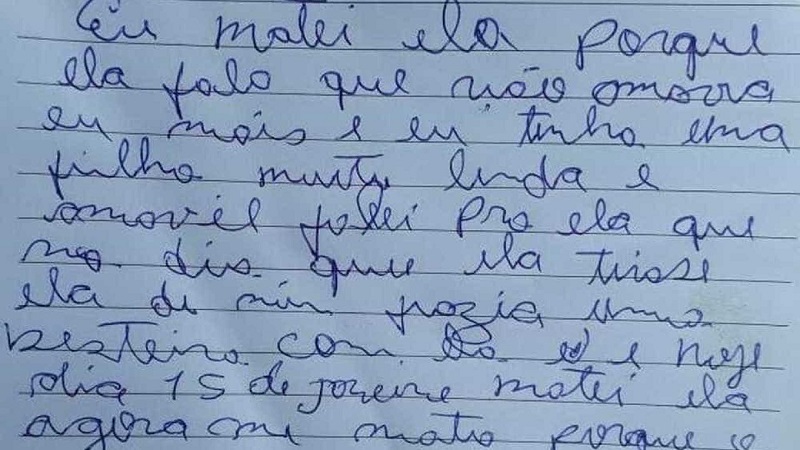 Eu matei ela porque
ela falo que não amava
eu mais e eu tinha uma
filha muito linda e
amovél falei pro ela que
no dia que ela tirase
ela de min fazia uma
besteira com ela e hoje
dia 15 de janeiro matei ela
agora me mato porque o